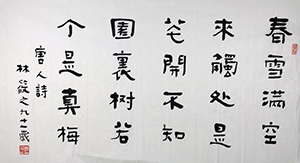 春雪满空
來觸处是
花開不知
園裏树若
个是真梅
唐人詩
林筱之九十一歲